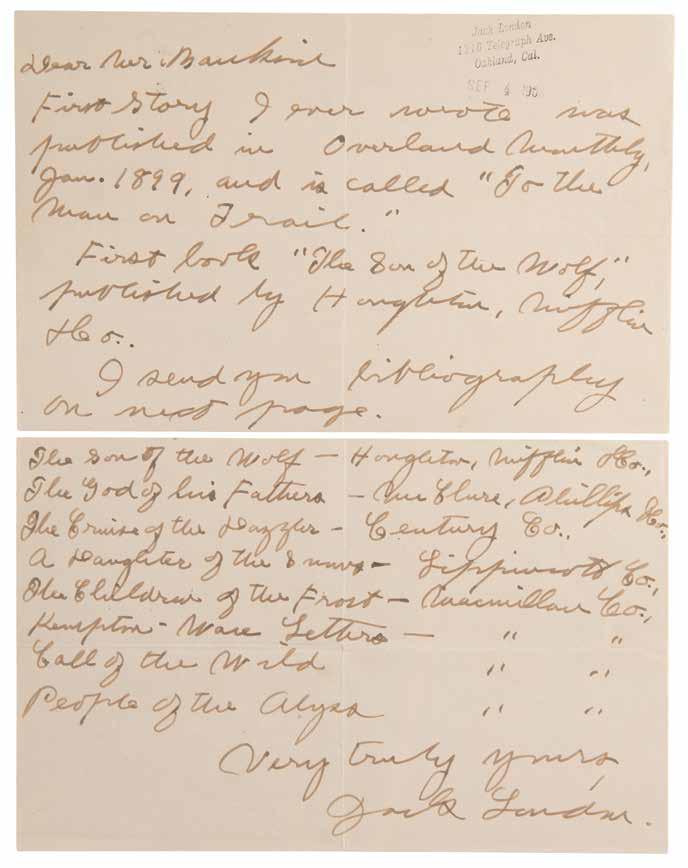 Jack London
1216 Telegraph Ave.
Oakland, Cal.
SEP 4 190
Dear Mr.
First Story I ever wrote was
published in Overland Monthly,
Jan. 1899, and is called "To the
Man on Trail."
First book "The Son of the Wolf,"
published by Houghton, Mifflin
& Co..
I send you bibliography
on next page.
The Son of the Wolf – Houghton, Mifflin & Co.,
The God of his Fathers – McClure, Phillips & Co.,
The Cruise of the Dazzler – Century Co.,
A Daughter of the Snows – Lippincott Co.,
The Children of the Frost – Macmillan Co.,
Kempton-Wace Letters – " "
Call of the Wild " "
People of the Abyss " "
Very truly yours,
Jack London.